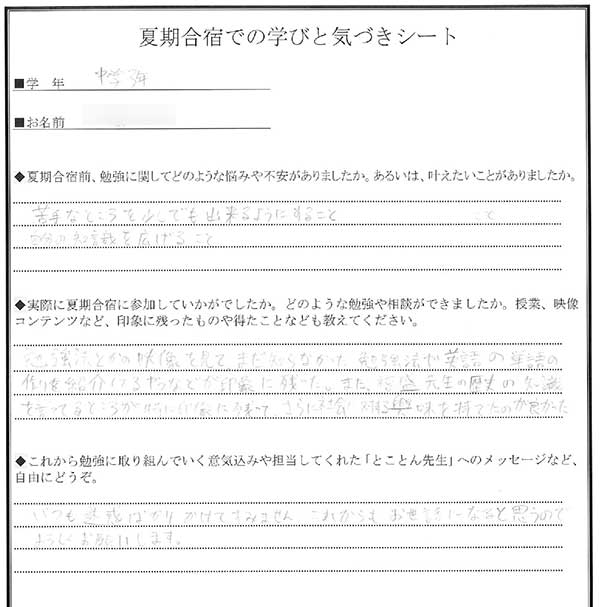 夏期合宿での学びと気づきシート
■学 年 中学3年
■お名前
◆夏期合宿前、勉強に関してどのような悩みや不安がありましたか。あるいは、叶えたいことがありましたか。
苦手なところを少しでも出来るようにすること
知識を広げること
◆実際に夏期合宿に参加していかがでしたか。どのような勉強や相談ができましたか。授業、映像
コンテンツなど、印象に残ったものや得たことなども教えてください。
勉強法とかの映像を見てまだ知らなかった勉強法や英語の単語の
作りを紹介してるやつなどが印象に残った。また、先生の歴史の知識
を言ってるところが特に印象に残って、さらに社会に対する興味を持てたのが良かった
◆これから勉強に取り組んでいく意気込みや担当してくれた「とことん先生」へのメッセージなど、
自由にどうぞ。
いつも迷惑ばかりかけてすみません。これからもお世話になると思うので
よろしくお願いします。